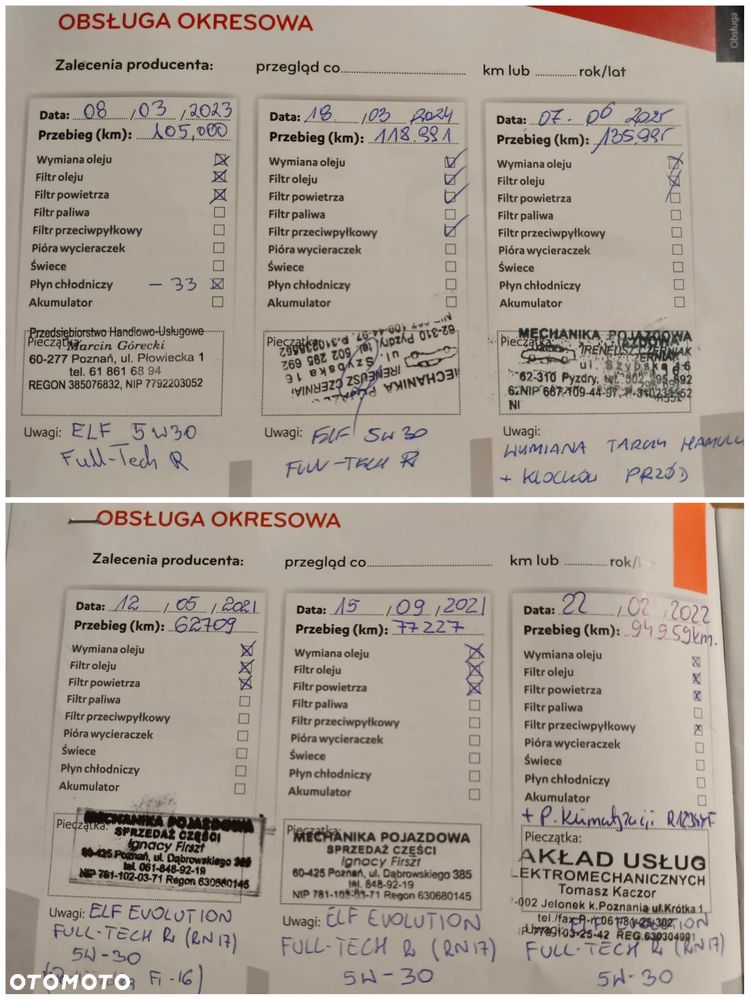 OBSŁUGA OKRESOWA
Obsługa
Zalecenia producenta: przegląd co............................... km lub ........... rok/lat
Data: 08 / 03 / 2023
Przebieg (km): 105,000
Wymiana oleju
Filtr oleju
Filtr powietrza
Filtr paliwa
Filtr przeciwpyłkowy
Pióra wycieraczek
Świece
Płyn chłodniczy - 33
Akumulator
Pieczątka:
Przedsiębiorstwo Handlowo-Usługowe
Marcin Górecki
60-277 Poznań, ul. Płowiecka 1
tel. 61 861 68 94
REGON 385076832, NIP 7792203052
Uwagi: ELF 5W30
Full-Tech R
Data: 18 / 03 2024
Przebieg (km): 118.991
Wymiana oleju
Filtr oleju
Filtr powietrza
Filtr paliwa
Filtr przeciwpyłkowy
Pióra wycieraczek
Świece
Płyn chłodniczy
Akumulator
Pieczątka:
MECHANIKA
IRENEUSZ CZERNIA
ul. Szybska 16
62-310 Pyzdry, tel. 502 295 692
Uwagi: ELF 5W30
FULL-TECH R
Data: 07. 06 2025
Przebieg (km): 135.995
Wymiana oleju
Filtr oleju
Filtr powietrza
Filtr paliwa
Filtr przeciwpyłkowy
Pióra wycieraczek
Świece
Płyn chłodniczy
Akumulator
Pieczątka:
MECHANIKA POJAZDOWA
IRENEUSZ CZERNIAK
ul. Szybska 16
62-310 Pyzdry, tel. 502 295 692
Uwagi:
WYMIANA TARCZ HAMULC
+ KLOCKÓW PRZÓD
OBSŁUGA OKRESOWA
Zalecenia producenta: przegląd co............................... km lub ........... rok/
Data: 12 / 05 / 2021
Przebieg (km): 62709
Wymiana oleju
Filtr oleju
Filtr powietrza
Filtr paliwa
Filtr przeciwpyłkowy
Pióra wycieraczek
Świece
Płyn chłodniczy
Akumulator
Pieczątka:
MECHANIKA POJAZDOWA
SPRZEDAŻ CZĘŚCI
Ignacy Firszt
60-425 Poznań, ul. Dąbrowskiego 385
tel. 061-848-92-19
NIP 781-102-03-71 Regon 630680145
Uwagi: ELF EVOLUTION
FULL-TECH R (RN17)
5W-30
Data: 15 / 09 / 2021
Przebieg (km): 77227
Wymiana oleju
Filtr oleju
Filtr powietrza
Filtr paliwa
Filtr przeciwpyłkowy
Pióra wycieraczek
Świece
Płyn chłodniczy
Akumulator
Pieczątka:
MECHANIKA POJAZDOWA
SPRZEDAŻ CZĘŚCI
Ignacy Firszt
60-425 Poznań, ul. Dąbrowskiego 385
tel. 848-92-19
NIP 781-102-03-71 Regon 630680145
Uwagi: ELF EVOLUTION
FULL-TECH R (RN17)
5W-30
Data: 22 / 02 / 2022
Przebieg (km): 94959km.
Wymiana oleju
Filtr oleju
Filtr powietrza
Filtr paliwa
Filtr przeciwpyłkowy
Pióra wycieraczek
Świece
Płyn chłodniczy
Akumulator
+ P. Klimatyzacji R1234YF
Pieczątka:
AKŁAD USŁUG
LEKTROMECHANICZNYCH
Tomasz Kaczor
-002 Jelonek k.Poznania ul.Krótka 1
P 778-103-25-42 REG.630304991
Uwagi: ELF EVOLUTION
FULL-TECH R (RN17)
5W-30
OTOMOTO